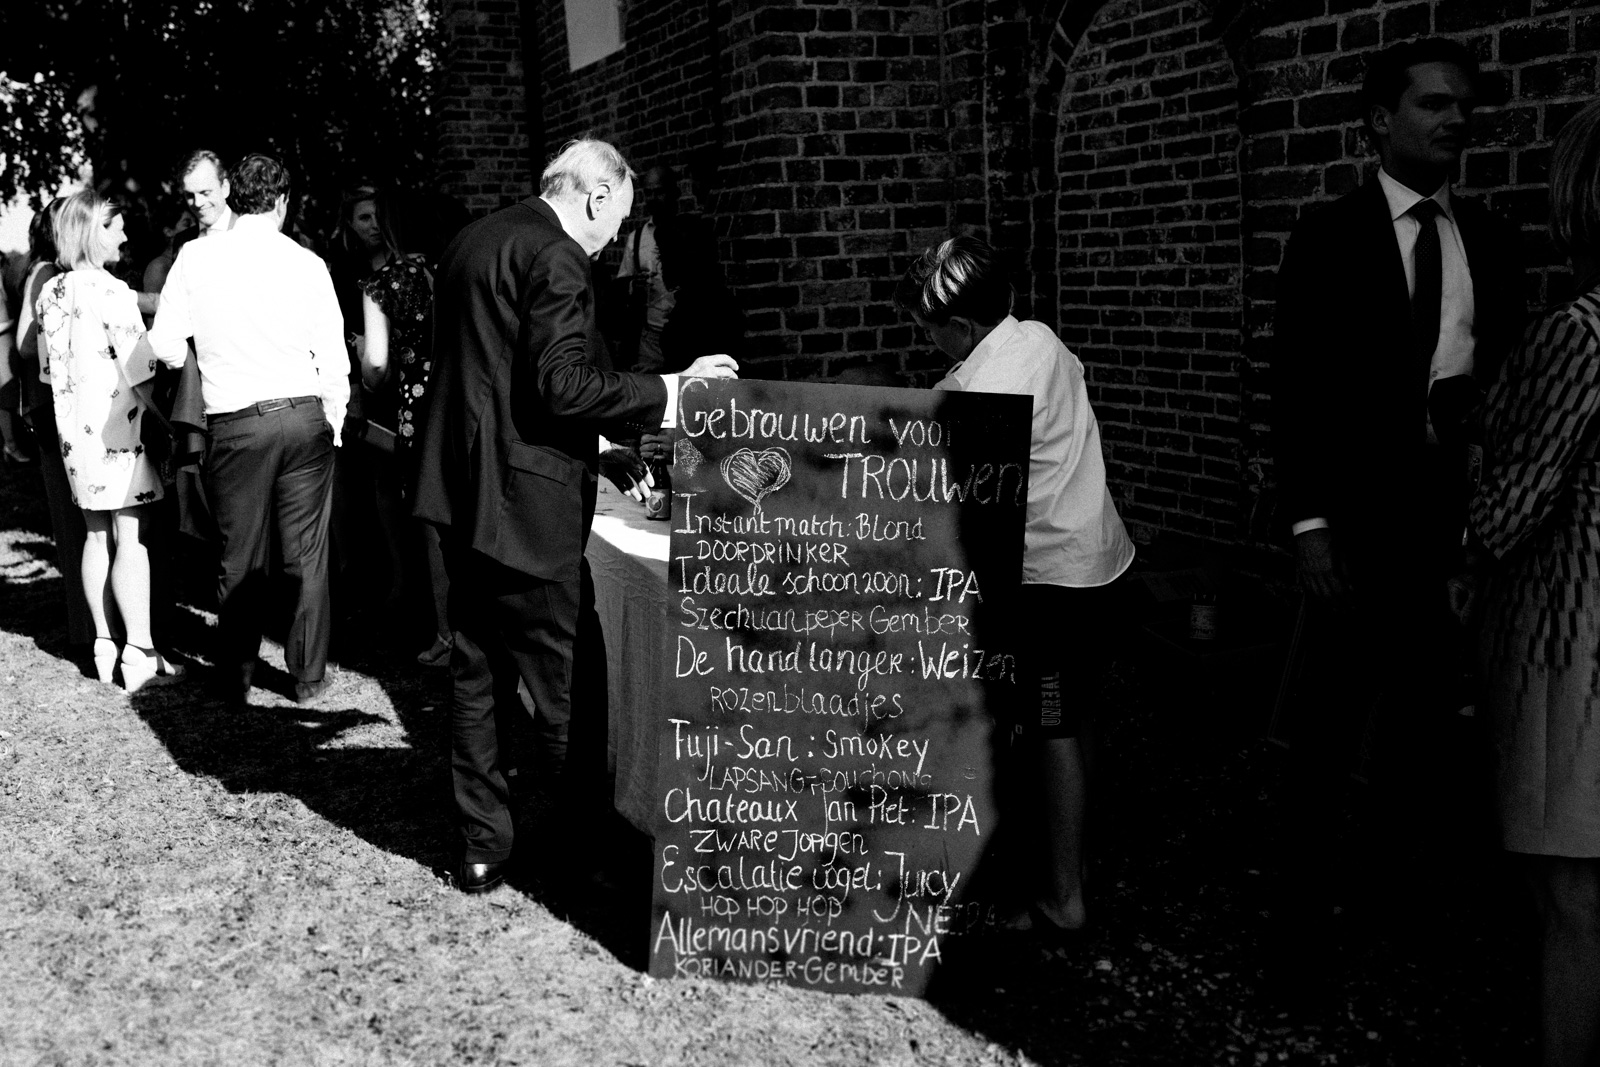 Gebrouwen voor
TROUWEN
Instant match: Blond
DOORDRINKER
Ideale schoonzoon: IPA
Szechuanpeper Gember
De handlanger: Weizen
Rozenblaadjes
Fuji-San: Smokey
LAPSANG-Souchong
Chateaux Jan Piet: IPA
ZWARE JONGEN
Escalatie vogel: Juicy
HOP HOP HOP NEIPA
Allemansvriend: IPA
KORIANDER-GEMBER
UNREAL